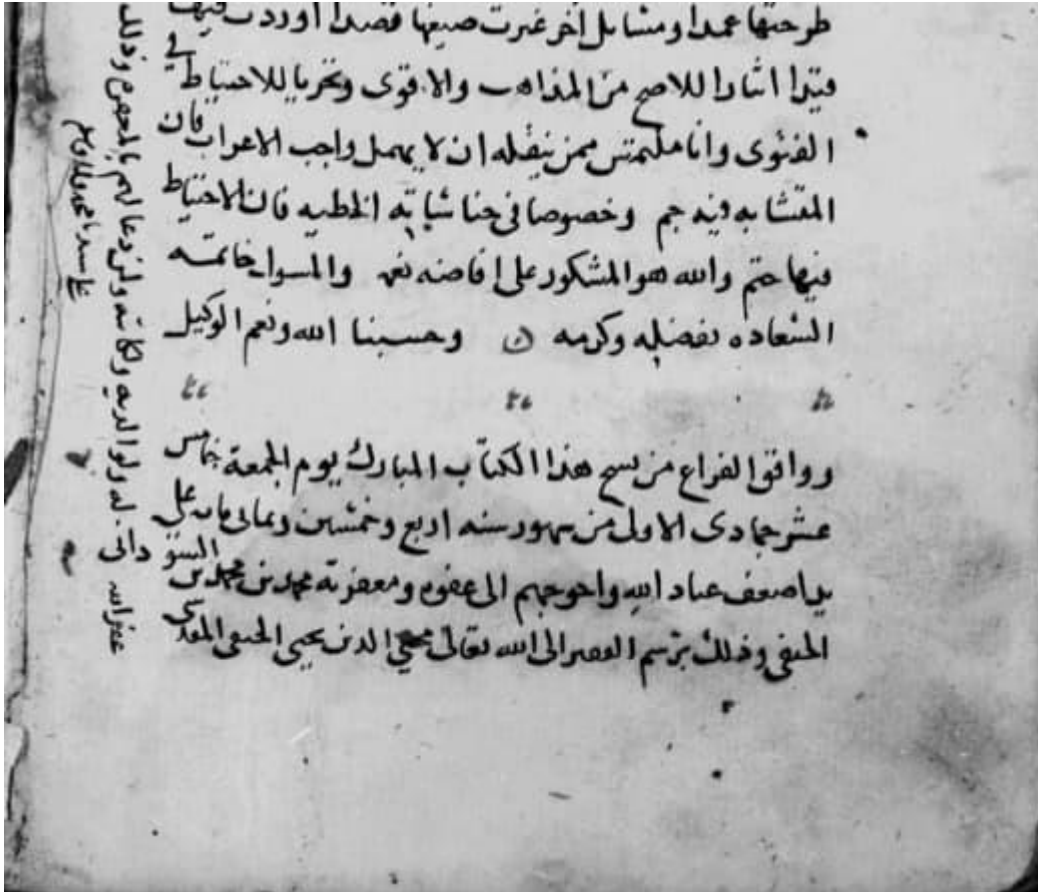 طرحتها عمدا ومسائل أخر غيرت صيغها قصدا أوردت فيها
قيدا ايثارا للاصح من المذاهب والاقوى وتحريا للاحتياط في
الفتوى وانا ملتمس ممن ينقله ان لا يهمل واجب الاعراب فان
المتشابه فيه جم وخصوصا في حنا شبابته الخطيه فان الاحتياط
فيها حتم والله هو المشكور على افاضه نعمه والمسول خاتمته
السعاده بفضله وكرمه وحسبنا الله ونعم الوكيل
ووافق الفراغ من نسخ هذا الكتاب المبارك يوم الجمعة خامس
عشر جمادى الاولى من شهور سنه اربع وخمسين وثمانى مايه على
يد اضعف عباد الله واحوجهم الى عفوه ومغفرته محمد بن محمد بن
الحنفى وذلك برسم الفقير الى الله تعالى محيي الدين يحيى الحنفى المقدسي
غفر الله له ولوالديه ولكاتبه ولمن دعا لهم